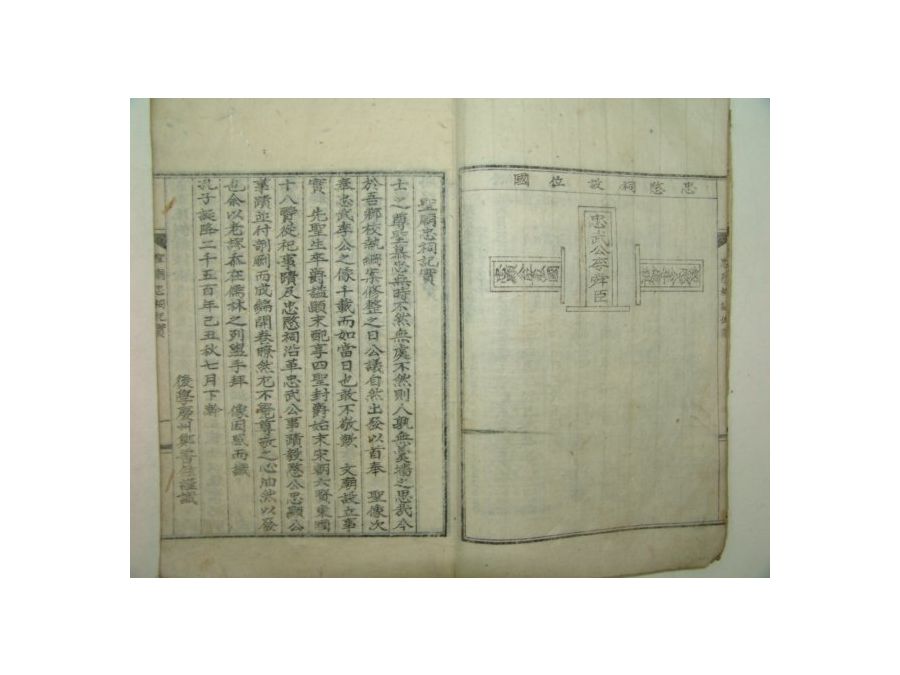 忠愍祠設位圖
忠武公李舜臣
聖廟忠祠記實
士之尊聖慕忠無時不然無處不然則人孰無羹墻之思我本
於吾鄕校 綱案修整之日公議自然出發以首奉 聖像次
奉忠武李公之像千載而如當日也敢不敬歟 文廟設立事
實 先聖生卒爵謚顚末配享四聖封爵始末宋朝六賢東國
十八賢從祀事蹟及忠愍祠沿革忠武公事蹟毅愍公忠顯公
事蹟並付剞劂而成編開卷瞭然尤不覺尊敬之心油然以發
也余以老 在儒林之列盥手拜 像因感而識
孔子誕降二千五百年己丑秋七月下澣
後學慶州鄭 謹識